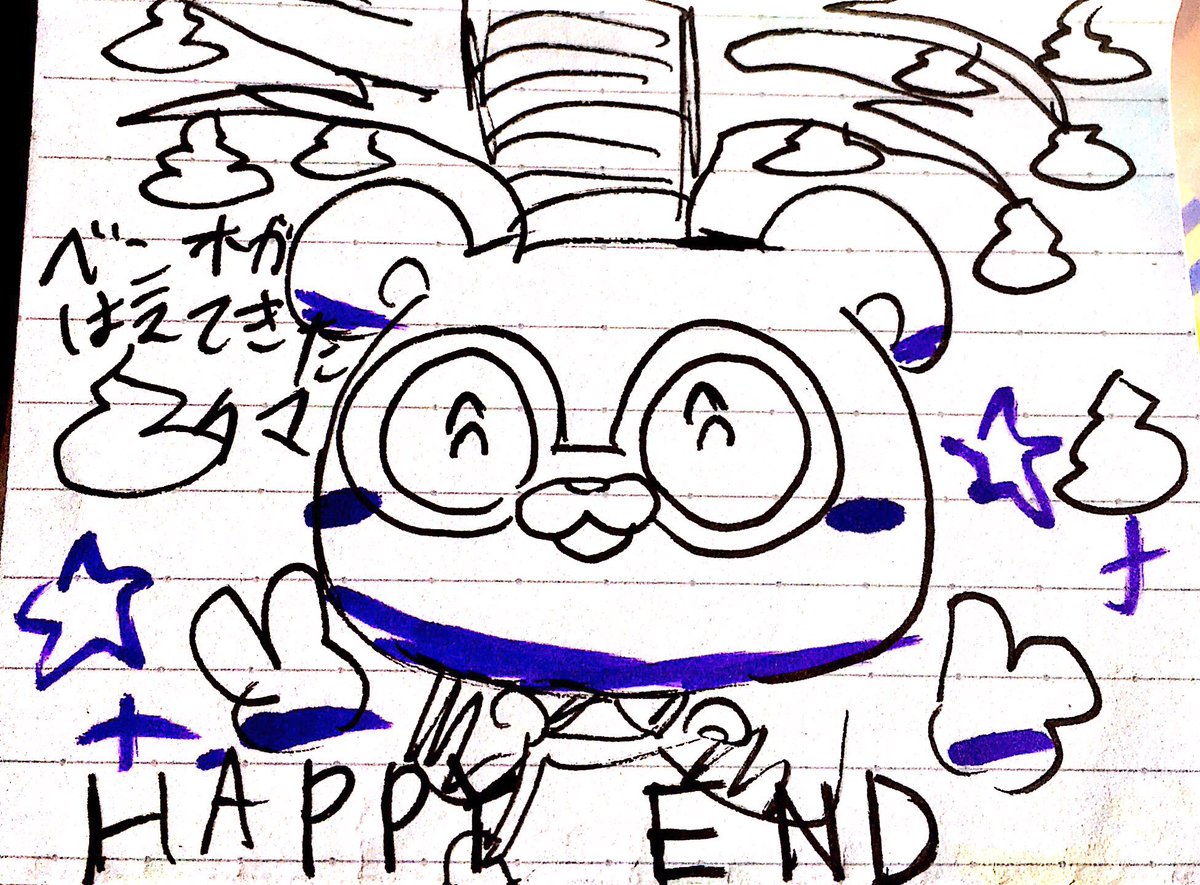 木が
はえてきた
クマ
HAPPY END